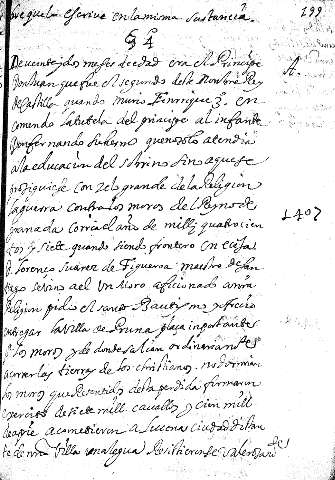 199
que la escrive en la misma sustancia.
§ 4
De veinte y dos meses de edad era el Principe
Don Juan que fue el segundo deste nombre Rey
de Castilla quando murio Henrrique 3. en
comendo la tutela del principe al infante
Don fernando su hermo que no solo atendia
a la educacion del sobrino sino aque se
prosiguiese con zelo grande de la Religion
la guerra contra los moros del Reyno de
granada corria el año de mill y quatrocien
tos y siete quando siendo frontero en ecija
D. Lorenço Suarez de Figueroa maestro de San
tiago se vino a el un Moro aficionado a nra
Religion pidio el santo Bautismo y ofrecio
entregar la villa de Pruna plaça importante
a los moros y de donde salian ordinariamte
a correr las tierras de los christianos
los moros que sentidos desta perdida formaron
exercito de siete mill cavallos y cien mill
de a pie acometieron a Lucena ciudad distan
te de nra Villa una legua Resistieronse
A.
1407